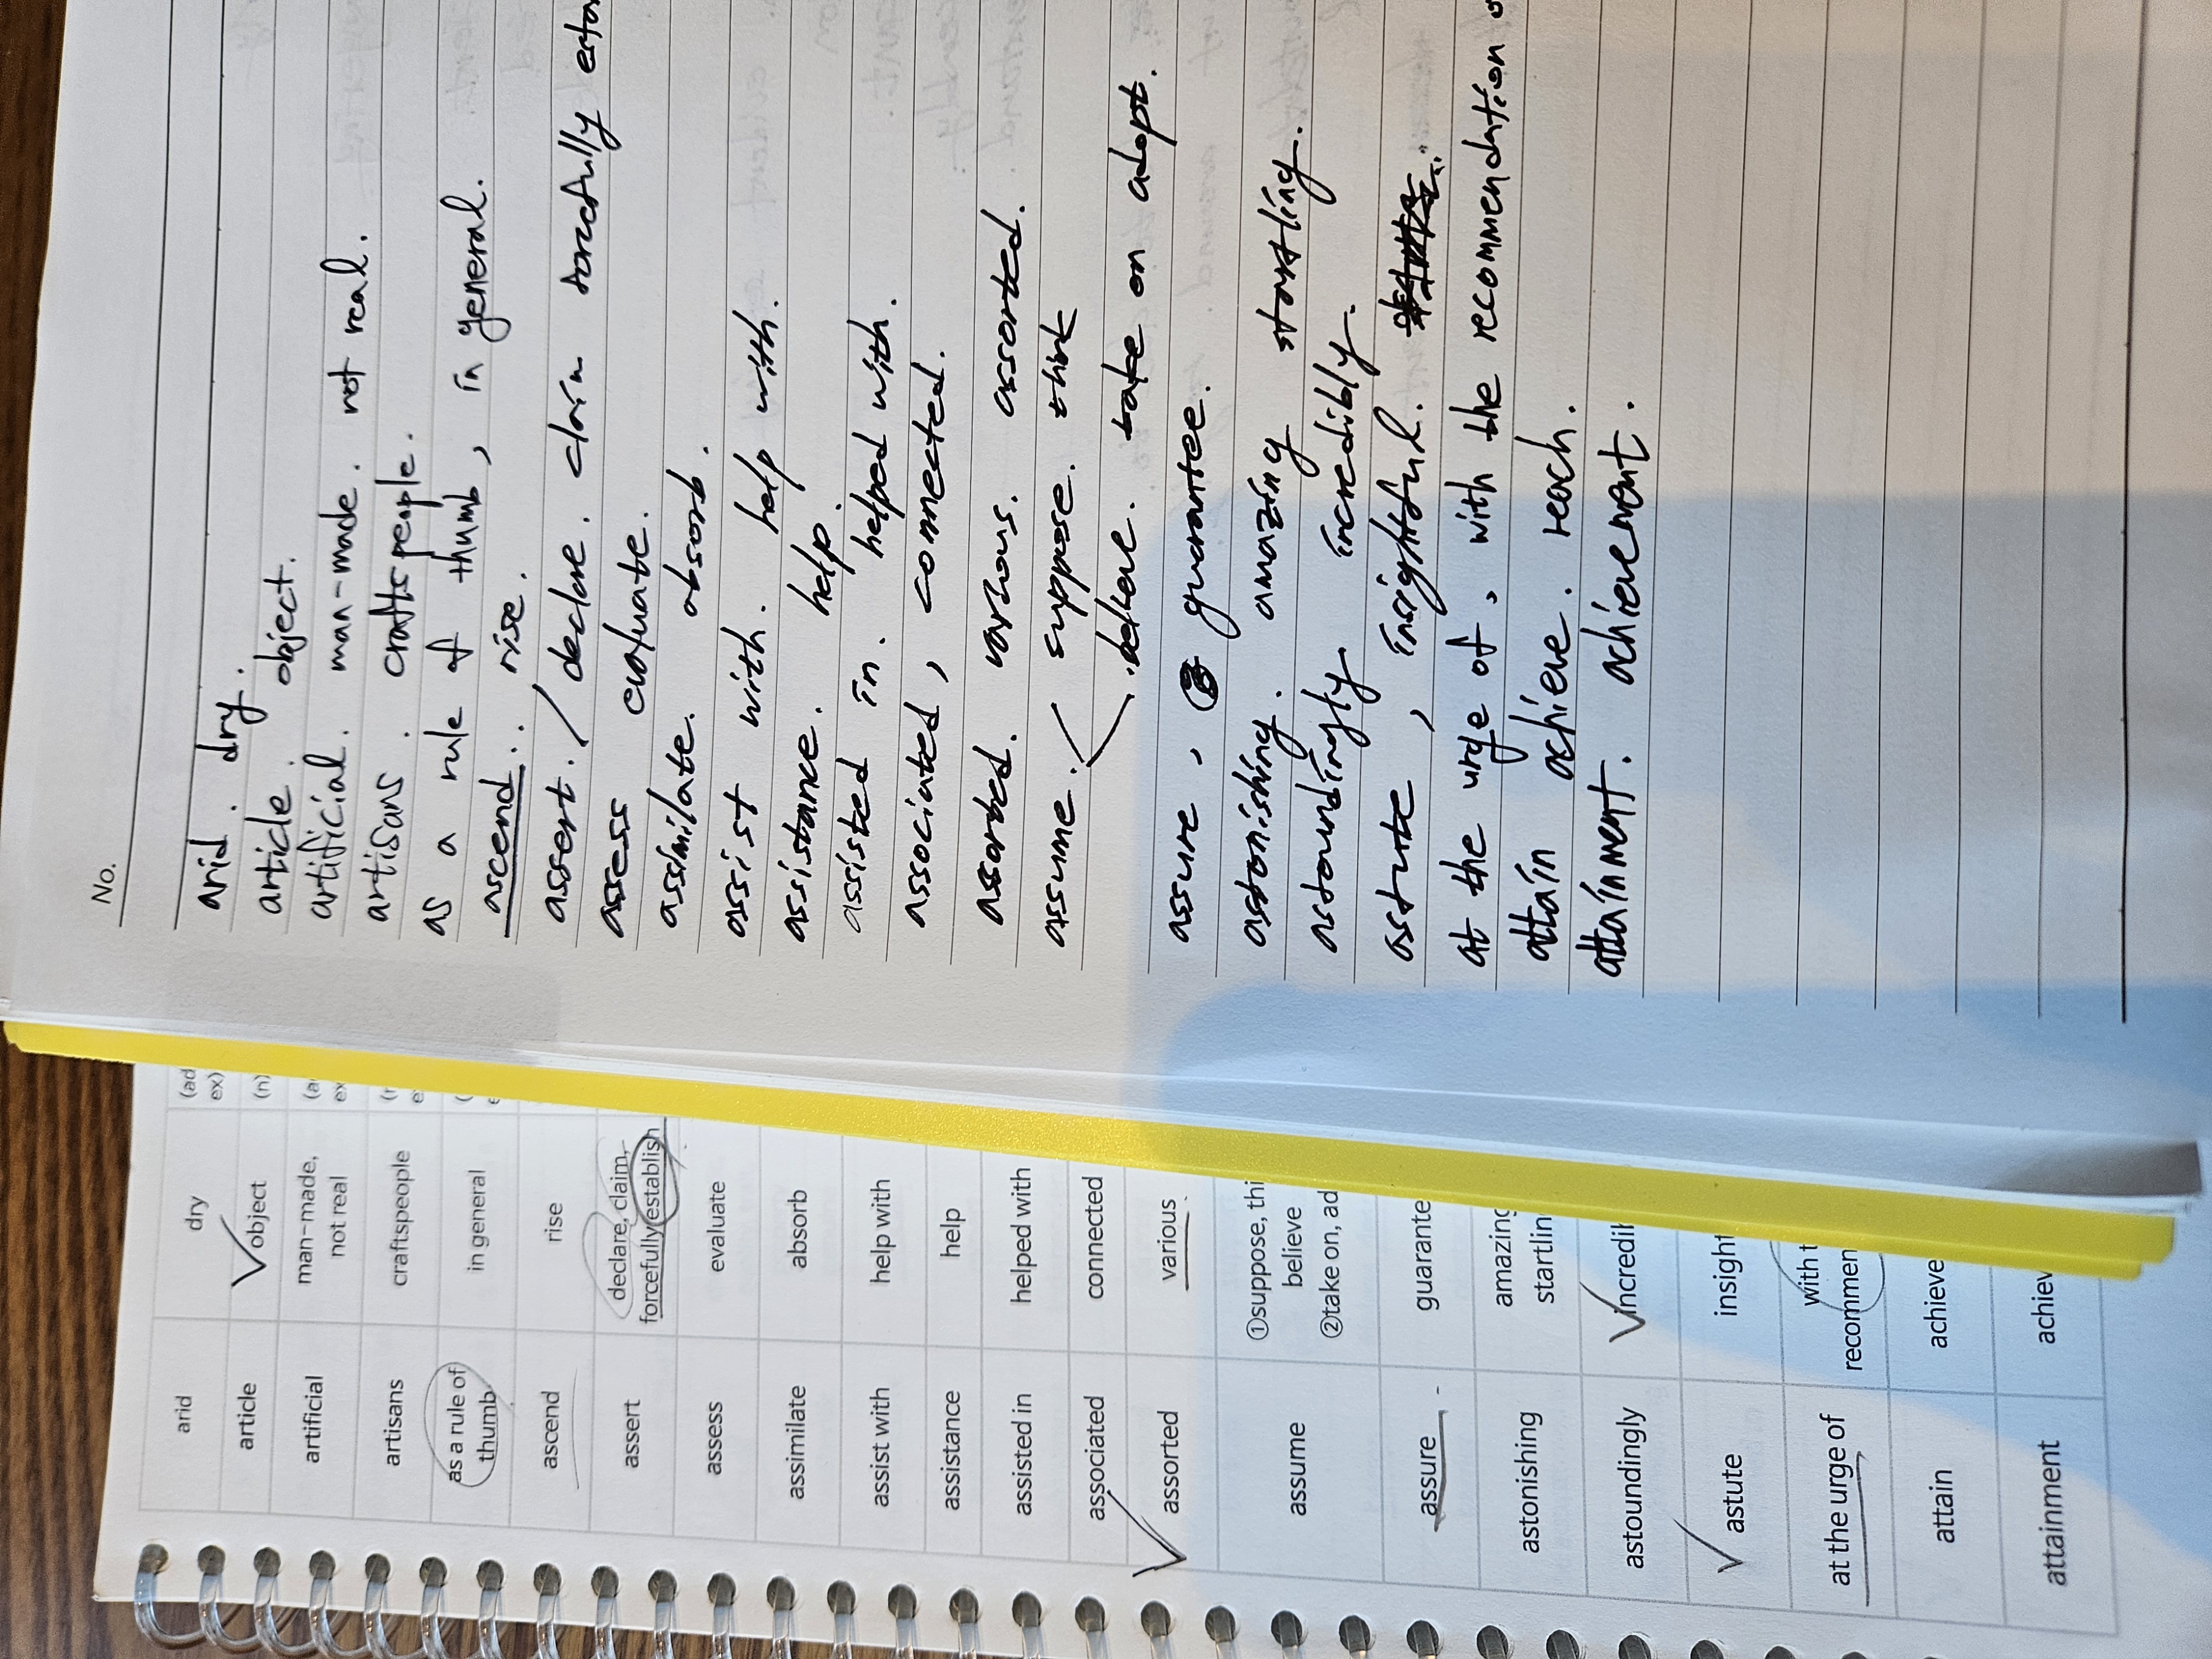 No.
arid. dry.
article. object.
artificial. man-made. not real.
artisans. craftspeople.
as a rule of thumb, in general.
ascend.. rise.
assert. / declare. claim forcefully
assess evaluate.
assimilate. absorb.
assist with. help with.
assistance. help.
assisted in. helped with.
associated, connected.
assorted. various. assorted.
assume. suppose. think
believe. take on adopt.
assure, guarantee.
astonishing. amazing startling.
astoundingly incredibly.
astute, insightful.
at the urge of, with the recommendation
attain achieve. reach.
attainment. achievement.
arid dry (ad
ex)
article object (n)
artificial man-made, (a
not real ex
artisans craftspeople
as a rule of in general
thumb
ascend rise
assert declare, claim,
forcefully establish
assess evaluate
assimilate absorb
assist with help with
assistance help
assisted in helped with
associated connected
assorted various
assume ①suppose, thi
believe
②take on, ad
assure guarante
astonishing amazing
startlin
astoundingly incredi
astute insight
at the urge of with t
recommen
attain achieve
attainment achiev